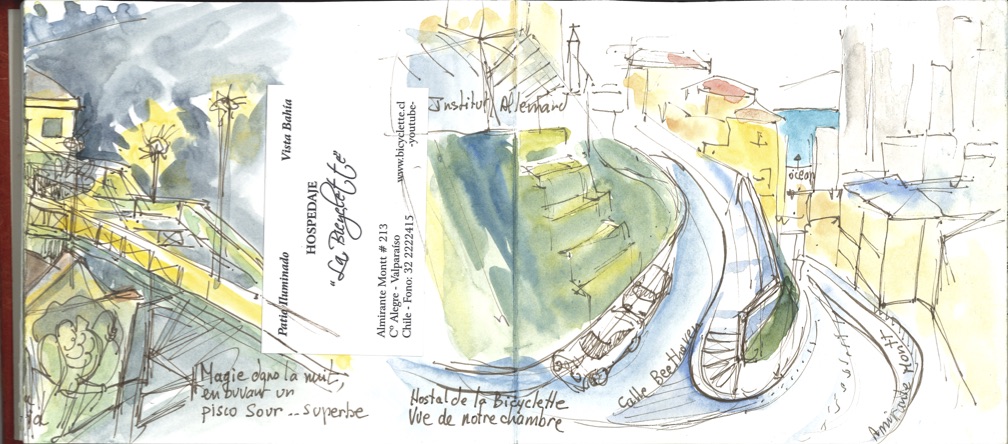 Magie dans la nuit,
en buvant un
pisco Sour .. superbe
Patio Iluminado
Vista Bahía
HOSPEDAJE
"La Bicyclette"
Almirante Montt # 213
C° Alegre - Valparaíso
Chile - Fono: 32 2222415
www.bicyclette.cl
-youtube-
Institut Allemand
océan
Calle Beethoven
Almirante Montt
Hostal de la Bicyclette
Vue de notre chambre